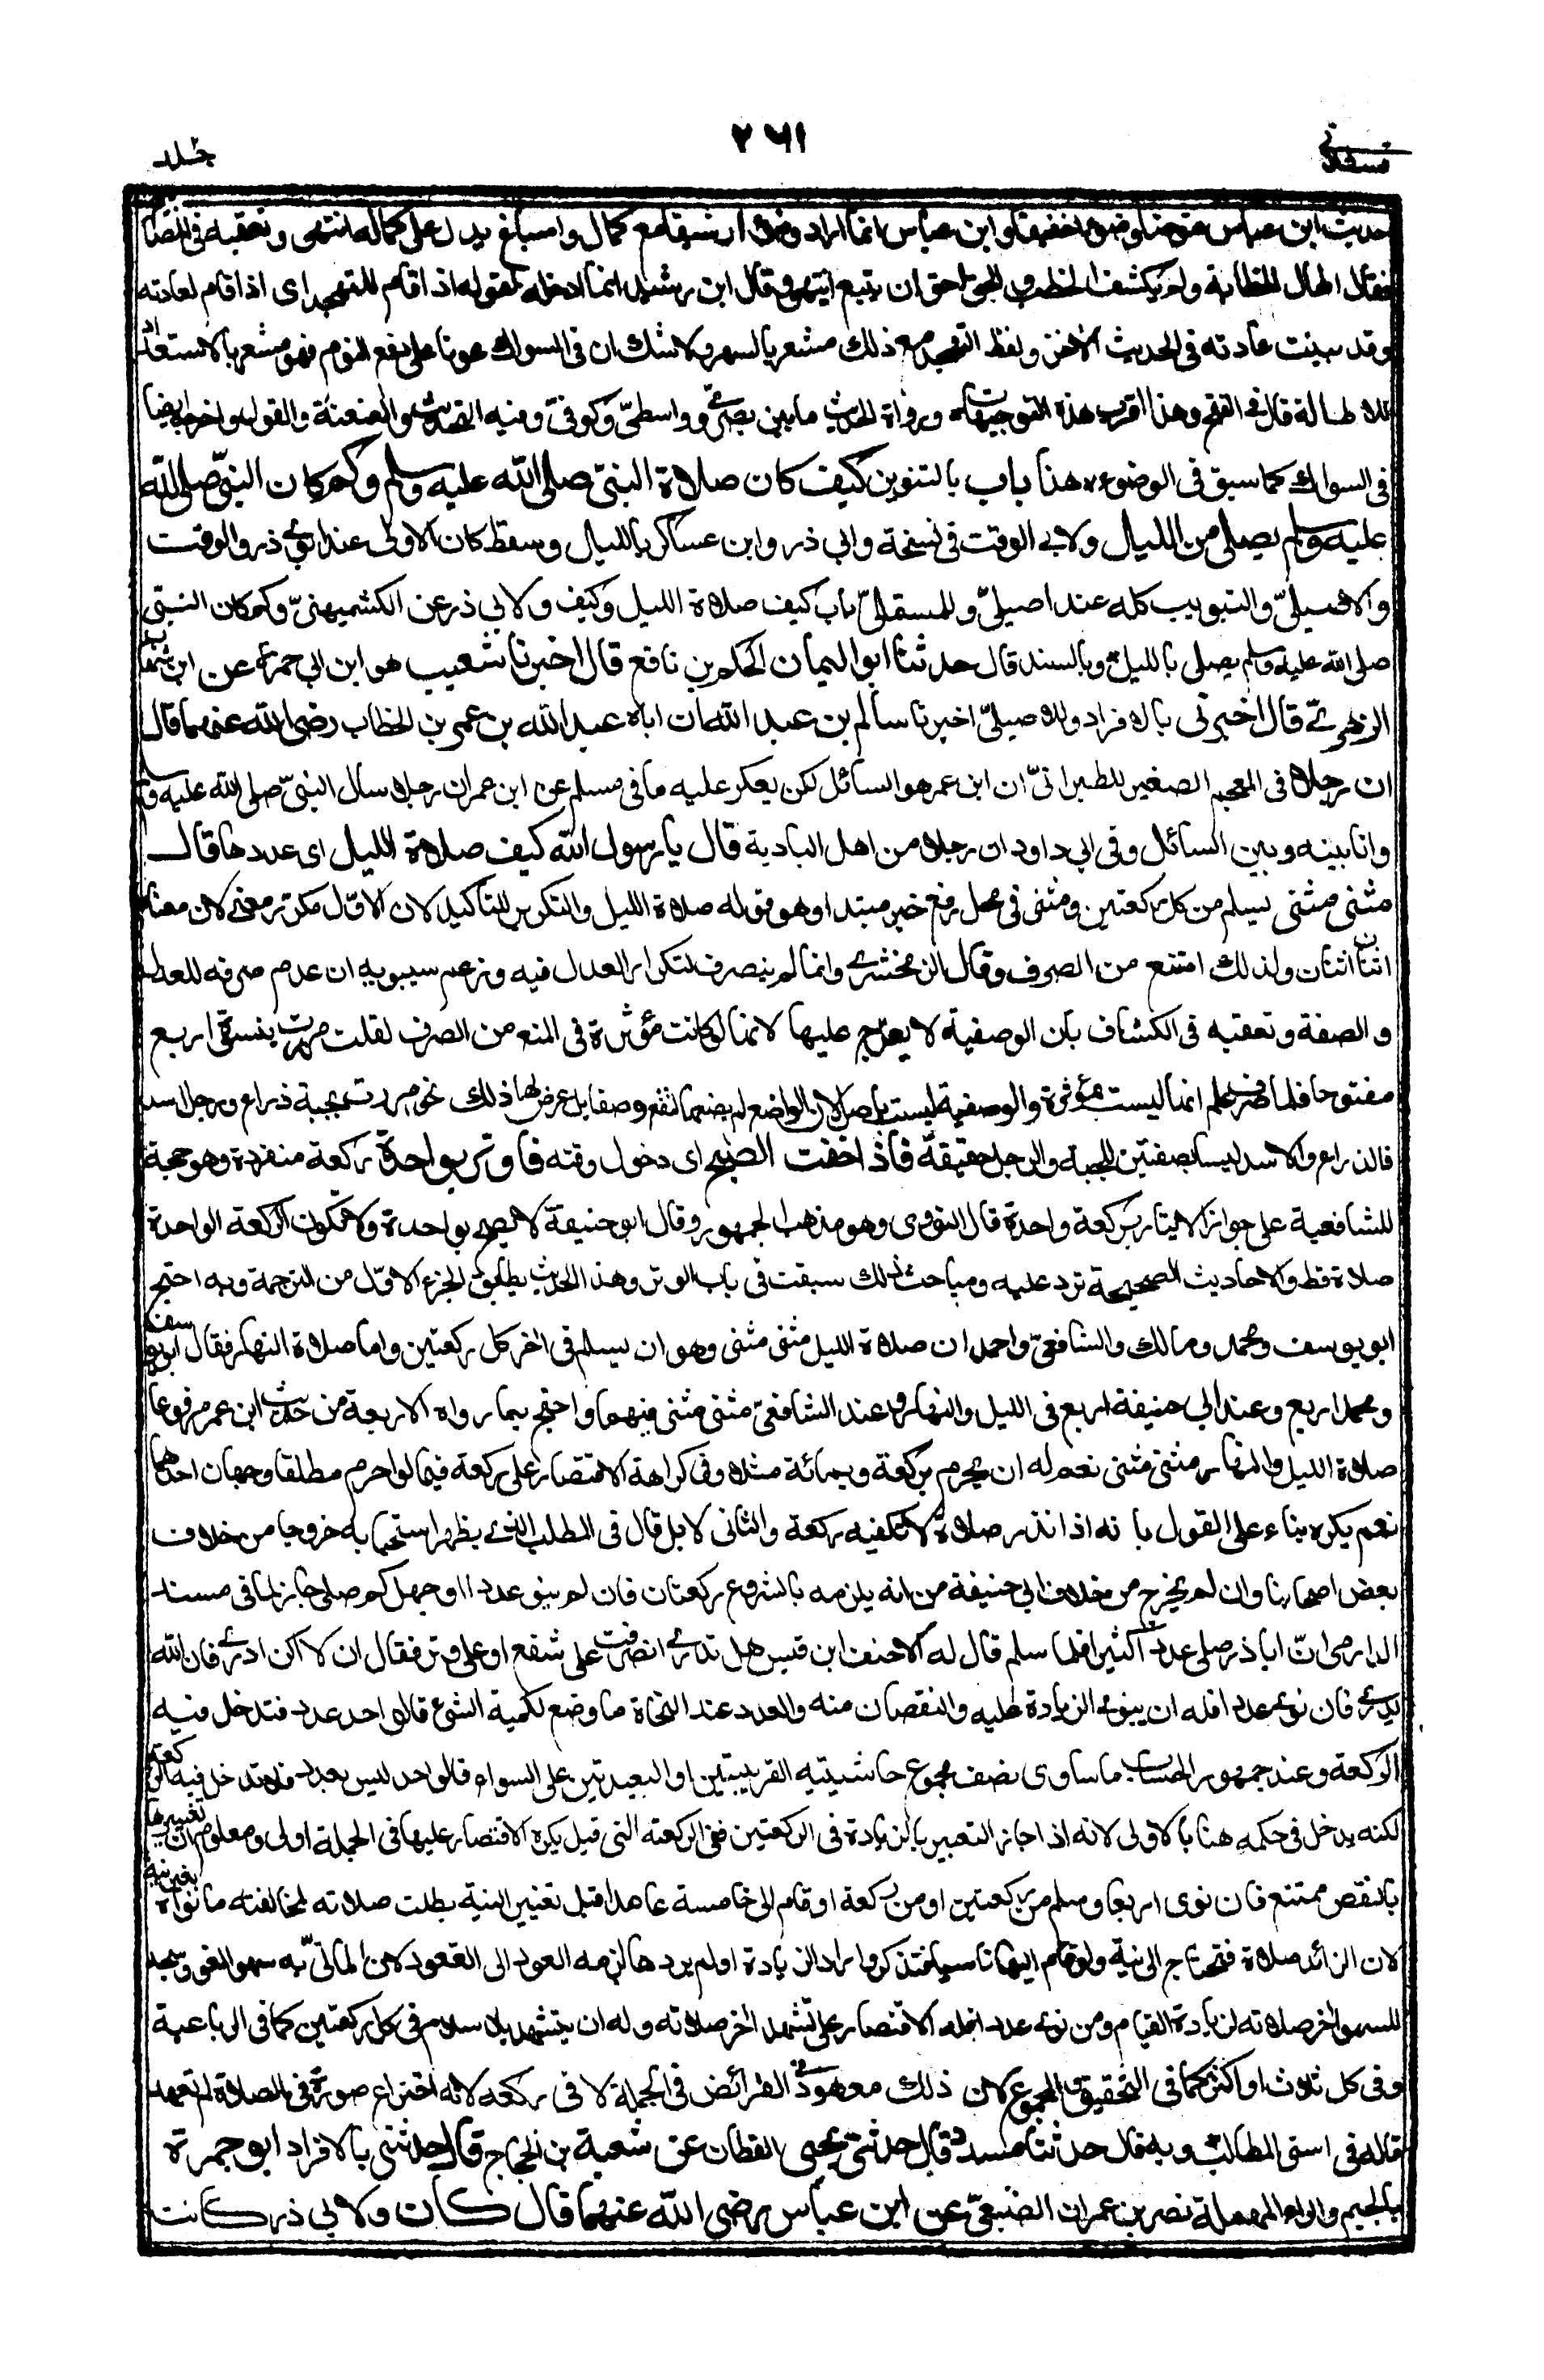 قسطلانی ٢٦١ جلد
حديث ابن عباس فتوضأ وضوءا خفيفا وابن عباس انما اراد وضوءا رشيقا مع كمال واسباغ يدل على كماله انتهى وتعقبه فى المصابيح
فقال اطال الخطابة ولم يكشف الخطب والحق احق ان يتبع انتهى وقال ابن رشيد انما ادخله لقوله اذا قام للتهجد اى اذا قام لعادته
وقد بينت عادته فى الحديث الاخر ولفظ التهجد مع ذلك مشعر بالسهر ولا شك ان فى السواك عونا على دفع النوم فهو مشعر بالاستعداد
للاطالة قال فى الفتح وهذا اقرب هذه التوجيهات ورواة الحديث ما بين بصرىّ وواسطىّ وكوفىّ وفيه التحديث والعنعنة والقول واخرجه ايضا
فى السواك كما سبق فى الوضوء هذا باب بالتنوين كيف كان صلاة النبىّ صلى الله عليه وسلم وكم كان النبىّ صلى الله
عليه وسلم يصلى من الليل ولابى الوقت فى نسخة وابى ذر وابن عساكر بالليل وسقط كان الاولى عند ابوى ذر والوقت
والاصيلىّ والتبويب كله عند اصيلىّ وللمستملىّ باب كيف صلاة الليل وكيف ولابى ذر عن الكشميهنىّ وكم كان النبىّ
صلى الله عليه وسلم يصلى بالليل وبالسند قال حدثنا ابو اليمان الحكم بن نافع قال اخبرنا شعيب هو ابن ابى حمزة عن ابن شهاب
الزهرىّ قال اخبرنى بالافراد وللاصيلىّ اخبرنا سالم بن عبد الله ان اباه عبد الله بن عمر بن الخطاب رضى الله عنهما قال
ان رجلا فى المعجم الصغير للطبرانىّ ان ابن عمر هو السائل لكن يعكر عليه ما فى مسلم عن ابن عمر ان رجلا سأل النبىّ صلى الله عليه وسلم
وانا بينه وبين السائل وفى ابى داود ان رجلا من اهل البادية قال يا رسول الله كيف صلاة الليل اى عددها قال
مثنى مثنى يسلم من كل ركعتين ومثنى فى محل رفع خبر مبتدا وهو قوله صلاة الليل والتكرير للتاكيد لان الاوّل مكرّر معنى لان معناه
اثنان اثنان ولذلك امتنع من الصرف وقال الزمخشرى وانما لم ينصرف لتكرار العدل فيه وزعم سيبويه ان عدم صرفه للعدل
والصفة وتعقبه فى الكشاف بان الوصفية لا يعرّج عليها لانها لو كانت مؤثرة فى المنع من الصرف لقلت مررت بنسوة اربع
مفتوحا فلما صرف علم انها ليست مؤثرة والوصفية ليست باصل لان الواضع لم يضعها لتقع وصفا بل عرض لها ذلك نحو مررت بحية ذراع ورجل اسد
فالذراع والاسد ليسا بصفتين للحية والرجل حقيقة فاذا خفت الصبح اى دخول وقته فاوتر بواحدة ركعة منفردة وهو حجة
للشافعية على جواز الايتار بركعة واحدة قال النووى وهو مذهب الجمهور وقال ابو حنيفة لا يصح بواحدة ولا تكون الركعة الواحدة
صلاة قط والاحاديث الصحيحة ترد عليه ومباحث ذلك سبقت فى باب الوتر وهذا الحديث يطابق الجزء الاوّل من الترجمة وبه احتج
ابو يوسف ومحمد ومالك والشافعىّ واحمد ان صلاة الليل مثنى مثنى وهو ان يسلم فى اخر كل ركعتين واما صلاة النهار فقال ابو يوسف
ومحمد اربع وعند ابى حنيفة اربع فى الليل والنهار وعند الشافعىّ مثنى مثنى فيهما واحتج بما رواه الاربعة من حديث ابن عمر مرفوعا
صلاة الليل والنهار مثنى مثنى نعم له ان يحرم بركعة وبمائة مثلا وفى كراهة الاقتصار على ركعة فيما لو احرم مطلقا وجهان احدهما
نعم يكره بناء على القول بانه اذا نذر صلاة لا تكفيه ركعة والثانى لا بل قال فى المطلب الذى يظهر استحبابه خروجا من خلاف
بعض اصحابنا وان لم يخرج من خلاف ابى حنيفة من انه يلزمه بالشروع ركعتان فان لم ينو عددا او جهل كم صلى جاز لما فى مسند
الدارمى انّ ابا ذر صلى عددا كثيرا فلما سلم قال له الاحنف ابن قيس هل تدرى انصرفت على شفع او على وتر فقال ان لا اكن ادرى فان الله
يدرى فان نوى عددا فله ان ينوى الزيادة عليه والنقصان منه والعدد عند النحاة ما وضع لكمية الشئ فالواحد عدد فتدخل فيه
الركعة وعند جمهور الحساب ما ساوى نصف مجموع حاشيتيه القريبتين او البعيدتين على السواء فالواحد ليس بعدد فلا تدخل فيه الركعة
لكنه يدخل فى حكمه هنا بالاولى لانه اذا جاز التغيير بالزيادة فى الركعتين ففى الركعة التى قيل يكره الاقتصار عليها فى الجملة اولى ومعلوم ان تغييرها
بالنقص ممتنع فان نوى اربعا وسلم من ركعتين او من ركعة او قام الى خامسة عامدا قبل تغيير النية بطلت صلاته لمخالفته ما نواه بغير نية
لان الزائد صلاة فتحتاج الى نية ولو قام اليها ناسيا فتذكر واراد الزيادة او لم يردها لزمه العود الى القعود لان المأتىّ به سهوا لغو وسجد
للسهو اخر صلاته لزيادة القيام ومن نوى عددا فله الاقتصار على تشهد اخر صلاته وله ان يتشهد بلا سلام فى كل ركعتين كما فى الرباعية
وفى كل ثلاث او اكثر كما فى التحقيق والمجموع لان ذلك معهود فى الفرائض فى الجملة لا فى ركعة لانه اختراع صورة فى الصلاة لم تعهد
قاله فى اسنى المطالب وبه قال حدثنا مسدد قال حدثنى يحيى القطان عن شعبة بن الحجاج قال حدثنى بالافراد ابو جمرة
بالجيم والراء المهملة نصر بن عمران الضبعىّ عن ابن عباس رضى الله عنهما قال كان ولابى ذر كانت